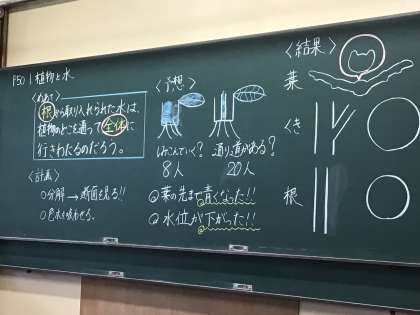 P50 1 植物と水
〈めあて〉
根から取り入れられた水は、
植物のどこを通って全体に
行きわたるのだろう。
〈計画〉
○分解→断面を見る!!
○色水を吸わせる。
〈予想〉
しみこんでいく?
8人
通り道がある?
20人
葉の先まで青くなった!!
水位が下がった!!
〈結果〉
葉
くき
根